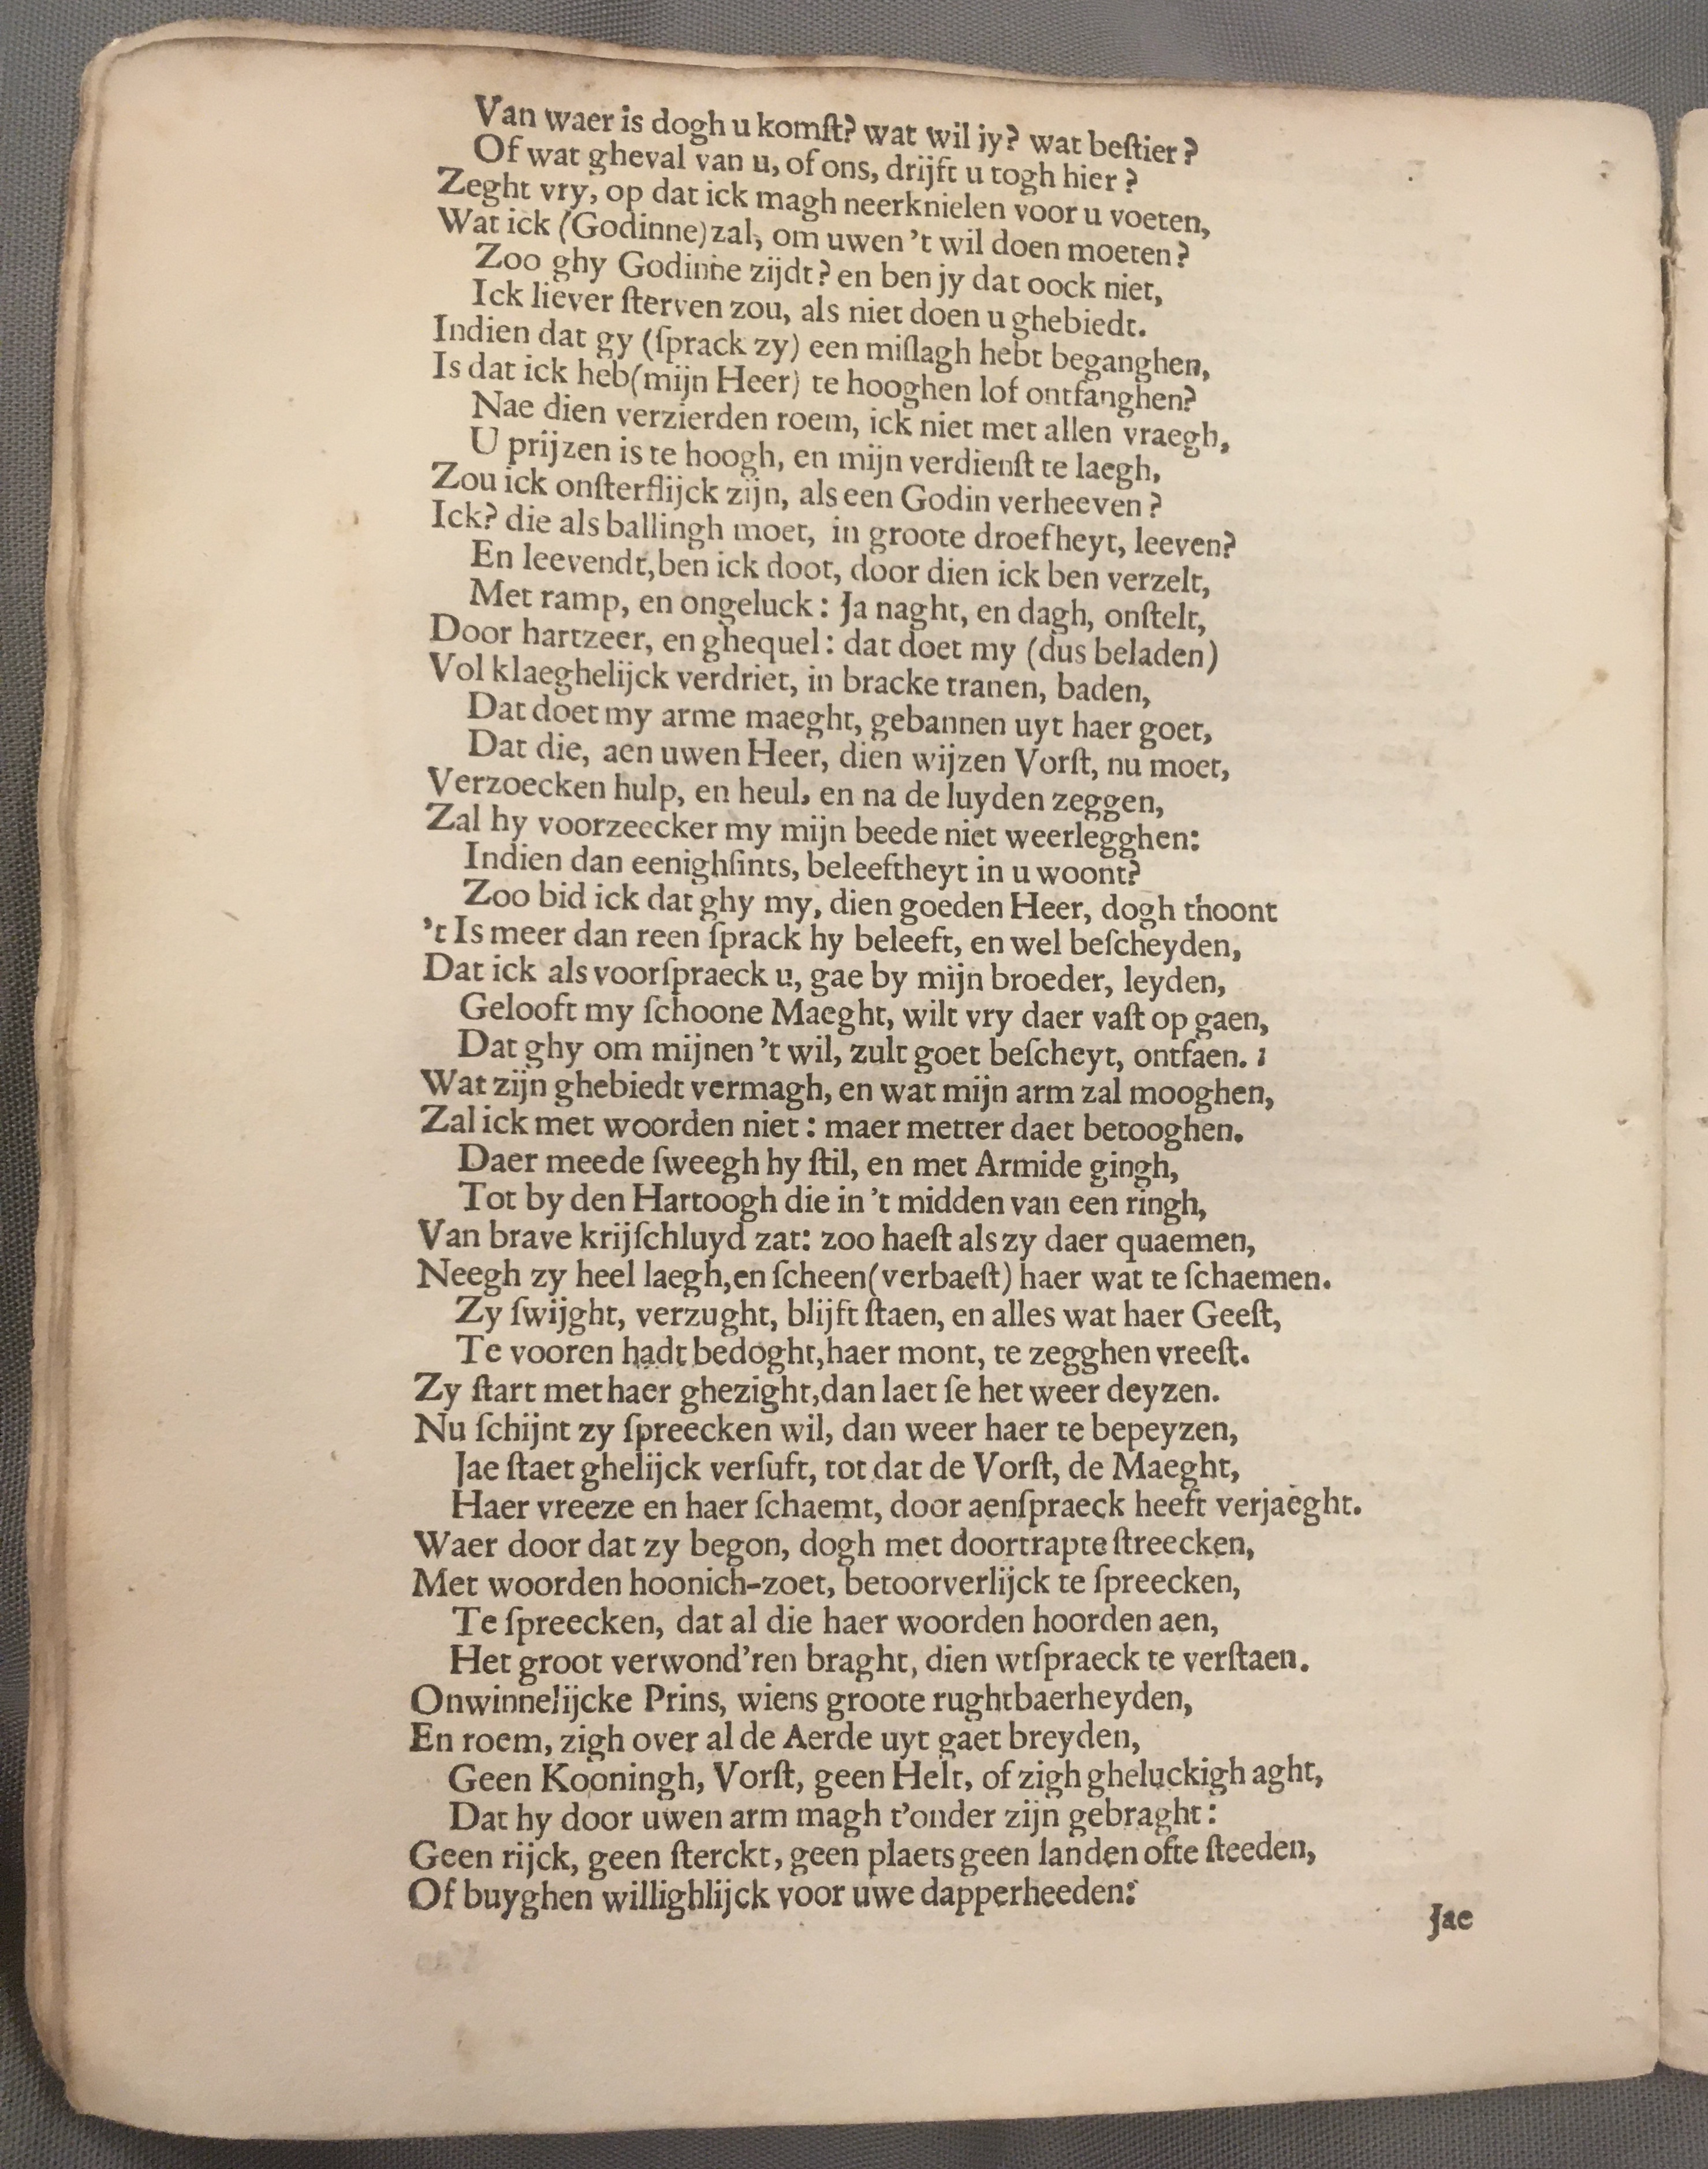 Van waer is dogh u komſt? wat wil jy? wat beſtier?
Of wat gheval van u, of ons, drijft u togh hier?
Zeght vry, op dat ick magh neerknielen voor u voeten,
Wat ick (Godinne) zal, om uwen 't wil doen moeten?
Zoo ghy Godinne zijdt? en ben jy dat oock niet,
Ick liever ſterven zou, als niet doen u ghebiedt.
Indien dat gy (ſprack zy) een miſlagh hebt beganghen,
Is dat ick heb (mijn Heer) te hooghen lof ontfanghen?
Nae dien verzierden roem, ick niet met allen vraegh,
U prijzen is te hoogh, en mijn verdienſt te laegh,
Zou ick onſterflijck zijn, als een Godin verheeven?
Ick? die als ballingh moet, in groote droefheyt, leeven?
En leevendt, ben ick doot, door dien ick ben verzelt,
Met ramp, en ongeluck: Ja naght, en dagh, onſtelt,
Door hartzeer, en ghequel: dat doet my (dus beladen)
Vol klaeghelijck verdriet, in bracke tranen, baden,
Dat doet my arme maeght, gebannen uyt haer goet,
Dat die, aen uwen Heer, dien wijzen Vorſt, nu moet,
Verzoecken hulp, en heul, en na de luyden zeggen,
Zal hy voorzeecker my mijn beede niet weerlegghen:
Indien dan eenighſints, beleeftheyt in u woont?
Zoo bid ick dat ghy my, dien goeden Heer, dogh thoont
't Is meer dan reen ſprack hy beleeft, en wel beſcheyden,
Dat ick als voorſpraeck u, gae by mijn broeder, leyden,
Gelooft my ſchoone Maeght, wilt vry daer vaſt op gaen,
Dat ghy om mijnen 't wil, zult goet beſcheyt, ontfaen.
Wat zijn ghebiedt vermagh, en wat mijn arm zal mooghen,
Zal ick met woorden niet: maer metter daet betooghen.
Daer meede ſweegh hy ſtil, en met Armide gingh,
Tot by den Hartoogh die in 't midden van een ringh,
Van brave krijſchluyd zat: zoo haeſt als zy daer quaemen,
Neegh zy heel laegh, en ſcheen (verbaeſt) haer wat te ſchaemen.
Zy ſwijght, verzught, blijft ſtaen, en alles wat haer Geeſt,
Te vooren hadt bedoght, haer mont, te zegghen vreeſt.
Zy ſtart met haer ghezight, dan laet ſe het weer deyzen.
Nu ſchijnt zy ſpreecken wil, dan weer haer te bepeyzen,
Jae ſtaet ghelijck verſuft, tot dat de Vorſt, de Maeght,
Haer vreeze en haer ſchaemt, door aenſpraeck heeft verjaeght.
Waer door dat zy begon, dogh met doortrapte ſtreecken,
Met woorden hoonich-zoet, betoorverlijck te ſpreecken,
Te ſpreecken, dat al die haer woorden hoorden aen,
Het groot verwond'ren braght, dien wtſpraeck te verſtaen.
Onwinnelijcke Prins, wiens groote rughtbaerheyden,
En roem, zigh over al de Aerde uyt gaet breyden,
Geen Kooningh, Vorſt, geen Helt, of zigh gheluckigh aght,
Dat hy door uwen arm magh t'onder zijn gebraght:
Geen rijck, geen ſterckt, geen plaets geen landen ofte ſteeden,
Of buyghen willighlijck voor uwe dapperheeden:
Jae